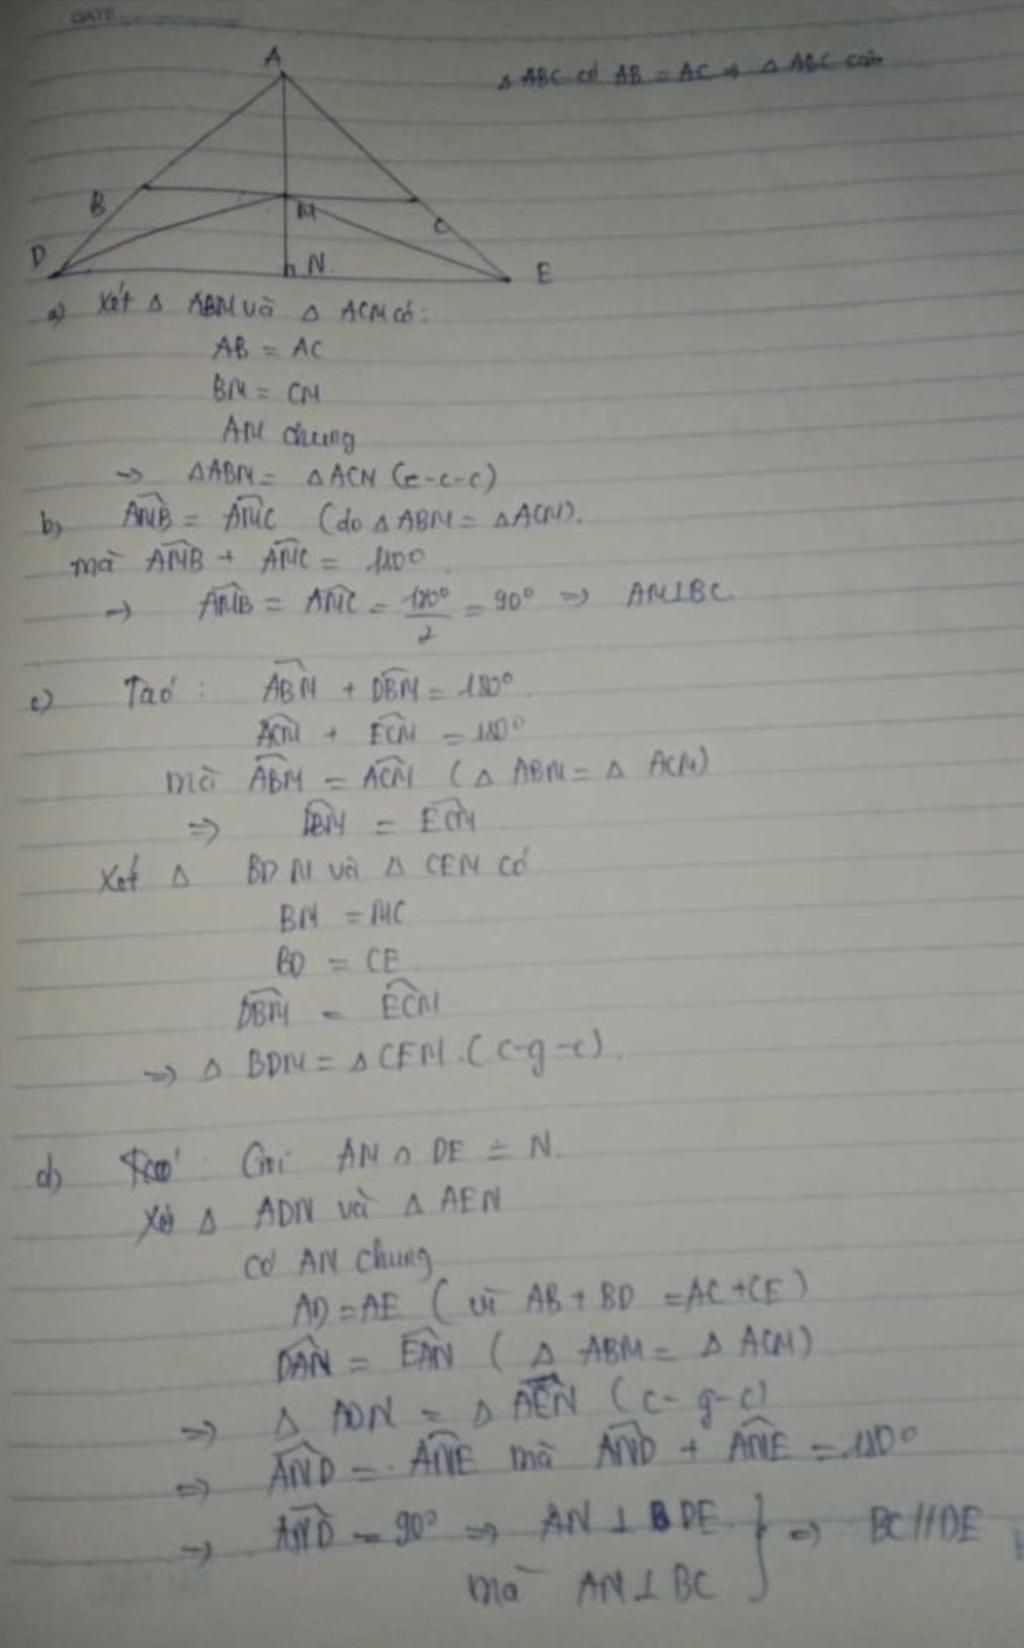 DATE
A
Δ ABC có AB = AC ⇒ Δ ABC cân
B
M
C
D
N
E
a) Xét Δ ABM và Δ ACM có:
AB = AC
BM = CM
AM chung
⇒ ΔABM = ΔACM (c-c-c)
b) \widehat{AMB} = \widehat{AMC} (do Δ ABM = ΔACM).
mà \widehat{AMB} + \widehat{AMC} = 180°.
⇒ \widehat{AMB} = \widehat{AMC} = \frac{180°}{2} = 90° ⇒ AM⊥BC
c) Ta có : \widehat{ABM} + \widehat{DBM} = 180°.
\widehat{ACM} + \widehat{ECM} = 180°
mà \widehat{ABM} = \widehat{ACM} ( Δ ABM = Δ ACM)
⇒ \widehat{DBM} = \widehat{ECM}
Xét Δ BDM và Δ CEM có
BM = MC
BD = CE
\widehat{DBM} = \widehat{ECM}
⇒ Δ BDM = Δ CEM. (c-g-c).
d) Gọi AM ∩ DE = N.
Xét Δ ADN và Δ AEN
có AN chung
AD = AE ( vì AB + BD = AC + CE )
\widehat{DAN} = \widehat{EAN} ( Δ ABM = Δ ACM)
⇒ Δ ADN = Δ AEN (c-g-c)
⇒ \widehat{AND} = \widehat{ANE} mà \widehat{AND} + \widehat{ANE} = 180°
⇒ \widehat{AND} = 90° ⇒ AN ⊥ DE } ⇒ BC//DE
mà AN ⊥ BC